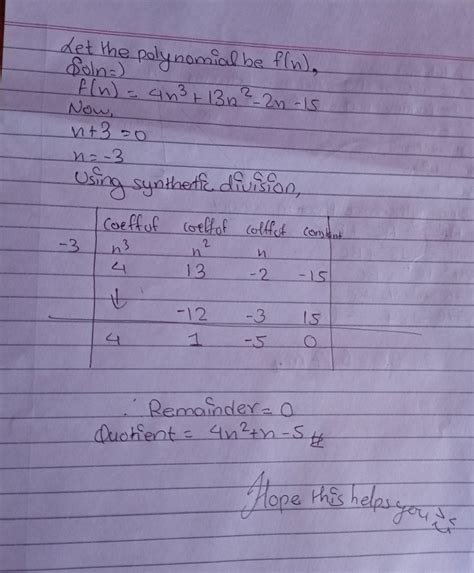 Let the polynomial be f(n),
Soln=)
f(n) = 4n³ + 13n² - 2n - 15
Now,
n+3=0
n=-3
Using synthetic division,
coeff of coeff of coeff of constant
-3 n³ n² n
4 13 -2 -15
↓ -12 -3 15
4 1 -5 0
∴ Remainder = 0
Quotient = 4n²+n-5 #
Hope this helps you